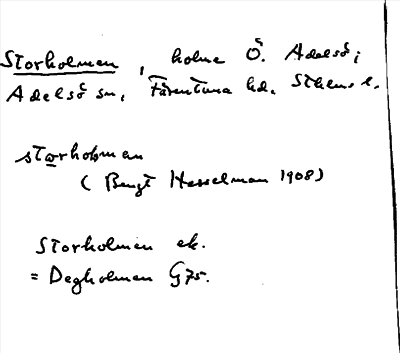 Storholmen, holme Ö. Adelsö;
Adelsö sn, Färentuna hd, Sthms l.
storholmen
(Bengt Hesselman 1908)
Storholmen ek.
= Degholmen G75.